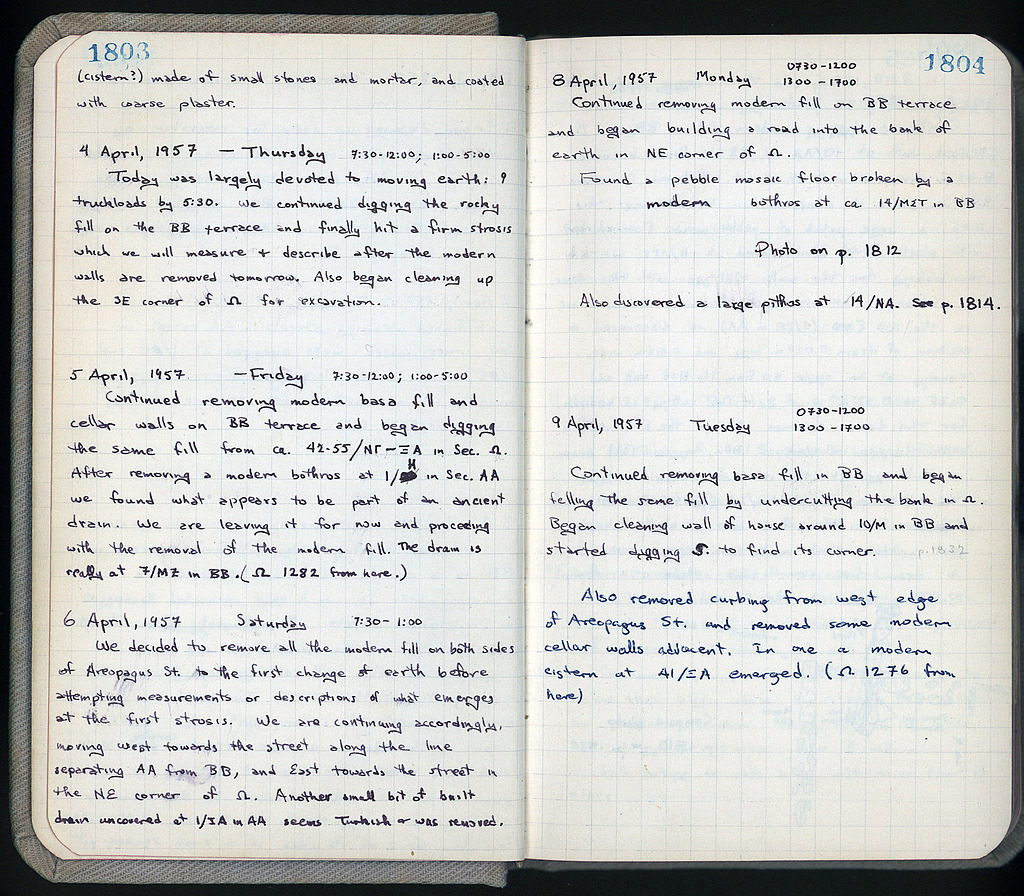 1803
(cistern?) made of small stones and mortar, and coated
with coarse plaster.
4 April, 1957 — Thursday 7:30-12:00; 1:00-5:00
Today was largely devoted to moving earth: 9
truckloads by 5:30. We continued digging the rocky
fill on the BB terrace and finally hit a firm strosis
which we will measure + describe after the modern
walls are removed tomorrow. Also began cleaning up
the SE corner of Ω for excavation.
5 April, 1957 — Friday 7:30-12:00; 1:00-5:00
Continued removing modern basa fill and
cellar walls on BB terrace and began digging
the same fill from ca. 42-55/ΝΓ-ΞΑ in Sec. Ω.
After removing a modern bothros at 1/H in Sec. AA
we found what appears to be part of an ancient
drain. We are leaving it for now and proceeding
with the removal of the modern fill. The drain is
really at 7/ΜΖ in BB. (Ω 1282 from here.)
6 April, 1957 Saturday 7:30-1:00
We decided to remove all the modern fill on both sides
of Areopagus St. to the first change of earth before
attempting measurements or descriptions of what emerges
at the first strosis. We are continuing accordingly,
moving west towards the street along the line
separating AA from BB, and East towards the street in
the NE corner of Ω. Another small bit of built
drain uncovered at in AA seems Turkish + was removed.
1804
8 April, 1957 Monday 0730-1200
1300-1700
Continued removing modern fill on BB terrace
and began building a road into the bank of
earth in NE corner of Ω.
Found a pebble mosaic floor broken by a
modern bothros at ca. 14/ΜΣΤ in BB
Photo on p. 1812
Also discovered a large pithos at 14/ΝΑ. See p. 1814.
9 April, 1957 Tuesday 0730-1200
1300-1700
Continued removing basa fill in BB and began
felling the same fill by undercutting the bank in Ω.
Began cleaning wall of house around 10/M in BB and
started digging S. to find its corner. p.1832
Also removed curbing from west edge
of Areopagus St. and removed some modern
cellar walls adjacent. In one a modern
cistern at 41/ΞΑ emerged. (Ω 1276 from
here)